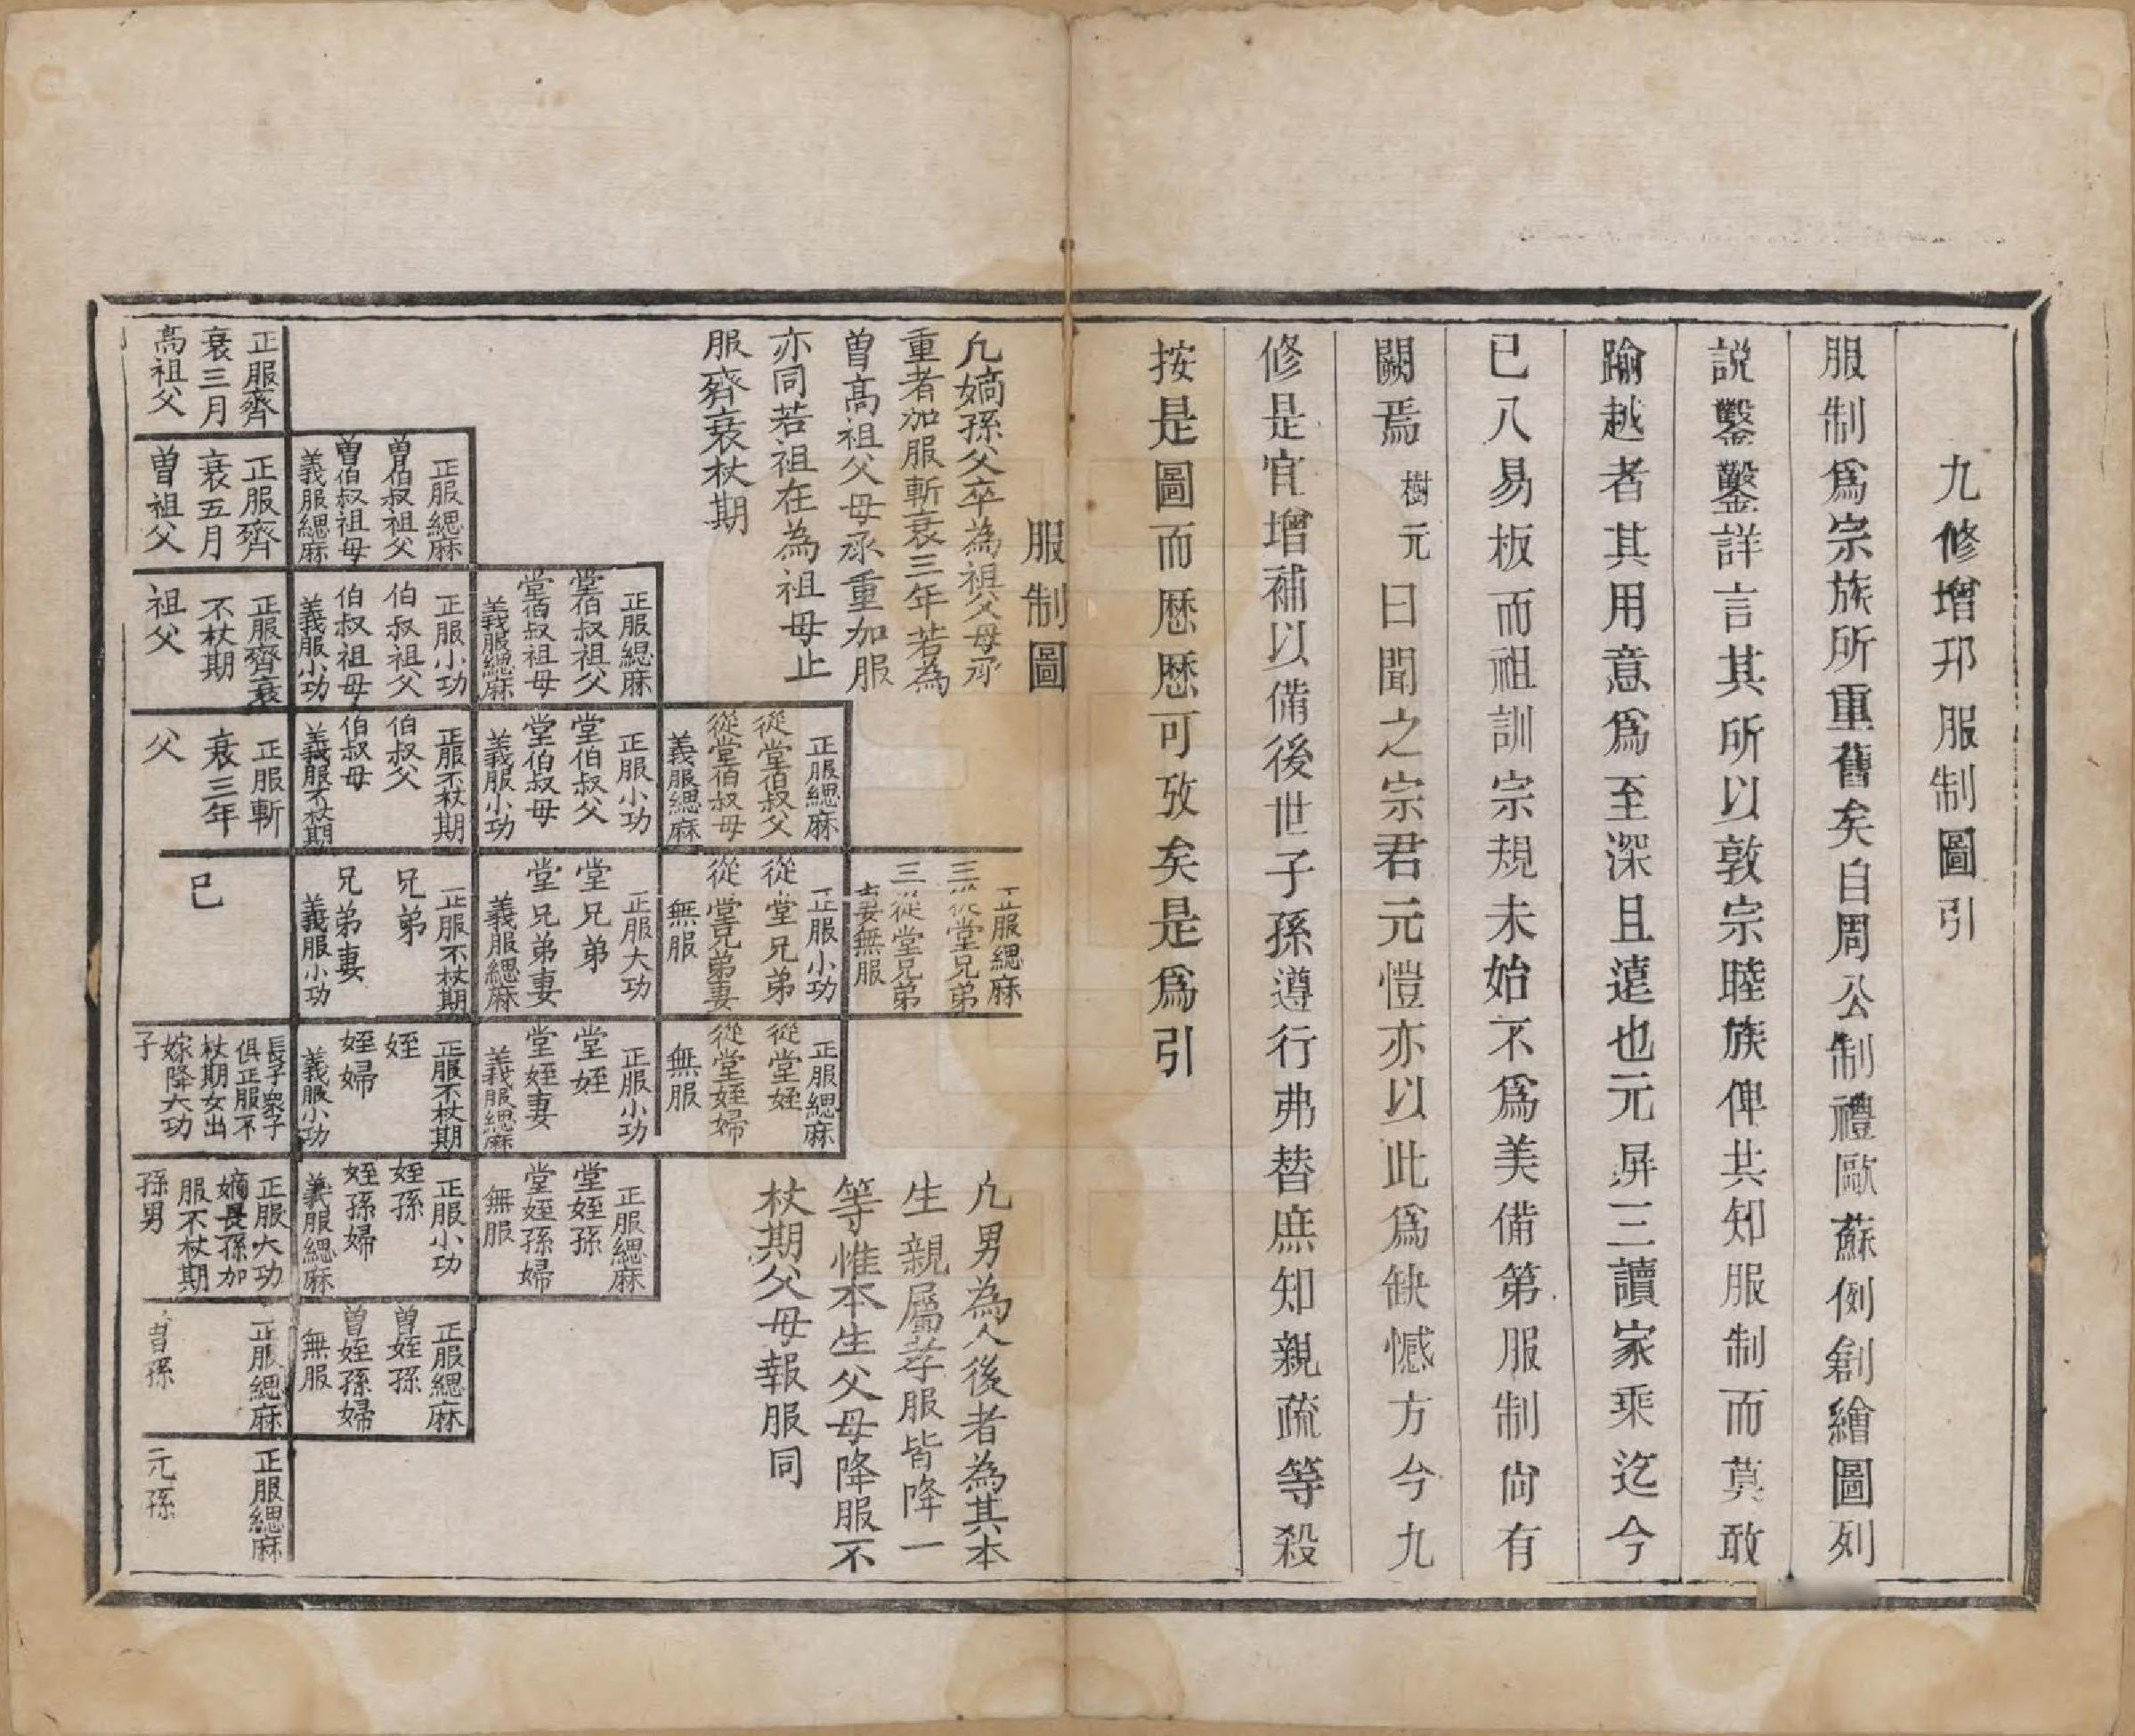 九修增邘服制圖引
服制爲宗族所重舊矣自周公制禮歐蘇例創繪圖列
説鑿鑿詳言其所以敦宗睦族俾共知服制而莫敢
踰越者其用意爲至深且遠也元屏三讀家乘迄今
已八易板而祖訓宗規未始不爲美備第服制尙有
闕焉樹元曰聞之宗君元愷亦以此爲缺憾方今九
修是宜增補以備後世子孫遵行弗替庶知親疏等殺
按是圖而歷歷可攷矣是爲引
服制圖
凡嫡孫父卒為祖父母承
重者加服斬衰三年若為
曽高祖父母承重加服
亦同若祖在為祖母止
服齊衰杖期
凡男為人後者為其本
生親屬孝服皆降一
等惟本生父母降服不
杖期父母報服同
正服齊
衰三月
高祖父
正服緦麻
曽伯叔祖父
曽伯叔祖母
義服緦麻
正服齊
衰五月
曽祖父
正服緦麻
堂伯叔祖父
堂伯叔祖母
義服緦麻
正服小功
伯叔祖父
伯叔祖母
義服小功
正服齊衰
不杖期
祖父
正服緦麻
從堂伯叔父
從堂伯叔母
義服緦麻
正服小功
堂伯叔父
堂伯叔母
義服小功
正服不杖期
伯叔父
伯叔母
義服不杖期
正服斬
衰三年
父
正服緦麻
三從堂兄弟
三從堂兄弟
妻無服
正服小功
從堂兄弟
從堂兄弟妻
無服
正服大功
堂兄弟
堂兄弟妻
義服緦麻
正服不杖期
兄弟
兄弟妻
義服小功
已
正服緦麻
從堂姪
從堂姪婦
無服
正服小功
堂姪
堂姪妻
義服緦麻
正服不杖期
姪
姪婦
義服小功
長子衆子
俱正服不
杖期女出
嫁降大功
子
正服緦麻
堂姪孫
堂姪孫婦
無服
正服小功
姪孫
姪孫婦
義服緦麻
正服大功
嫡長孫加
服不杖期
孫男
正服緦麻
曽姪孫
曽姪孫婦
無服
正服緦麻
曽孫
正服緦麻
元孫